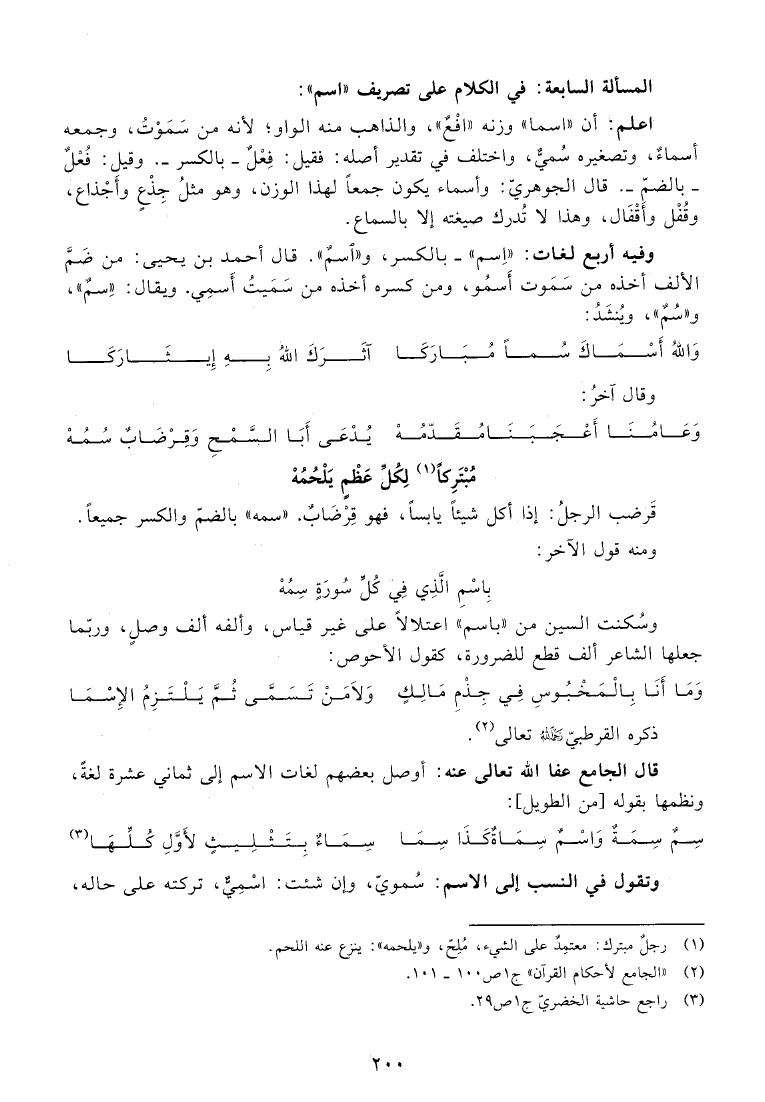 المسألة السابعة: في الكلام على تصريف «اسم»:
اعلم: أن «اسما» وزنه «افْعٌ»، والذاهب منه الواو؛ لأنه من سَمَوْتُ، وجمعه
أسماءٌ، وتصغيره سُميٌّ، واختلف في تقدير أصله: فقيل: فِعْلٌ ـ بالكسر ـ. وقيل: فُعْلٌ
ـ بالضمّ ـ. قال الجوهريّ: وأسماء يكون جمعاً لهذا الوزن، وهو مثلُ جِذْعٍ وأَجْذاع،
وقُفْل وأَقْفَال، وهذا لا تُدرك صيغته إلا بالسماع.
وفيه أربع لغات: «اِسم» ـ بالكسر، و«اُسمٌ». قال أحمد بن يحيى: من ضَمَّ
الألف أخذه من سَمَوت أسمُو، ومن كسره أخذه من سَمَيتُ أسمِي. ويقال: «سِمٌ»،
و«سُمٌ»، ويُنشَدُ:
وَاللهُ أَسْمَاكَ سُماً مُبَارَكَا آثَرَكَ اللهُ بِهِ إِيثَارَكَا
وقال آخرُ:
وَعَامُنَا أَعْجَبَنَا مُقَدَّمُهْ يُدْعَى أَبَا السَّمْحِ وَقِرْضَابٌ سُمُهْ
مُبْتَرِكاً(١) لِكُلِّ عَظْمٍ يَلْحُمُهْ
قَرضب الرجلُ: إذا أكل شيئاً يابساً، فهو قِرْضَابٌ. «سمه» بالضمّ والكسر جميعاً.
ومنه قول الآخر:
بِاسْمِ الَّذِي فِي كُلِّ سُورَةٍ سِمُهْ
وسُكنت السين من «باسم» اعتلالاً على غير قياس، وألفه ألف وصلٍ، وربّما
جعلها الشاعر ألف قطع للضرورة، كقول الأحوص:
وَمَا أَنَا بِالْمَخْبُوسِ فِي جِذْمِ مَالِكٍ وَلاَمَنْ تَسَمَّى ثُمَّ يَلْتَزِمُ الإِسْمَا
ذكره القرطبيّ رَحِمَهُ اللهُ تعالى(٢).
قال الجامع عفا الله تعالى عنه: أوصل بعضهم لغات الاسم إلى ثماني عشرة لغةً،
ونظمها بقوله [من الطويل]:
سِمٌ سِمَةٌ وَاسْمٌ سِمَاةٌ كَذَا سِمَا سِمَاءٌ بِتَثْلِيثٍ لأَوَّلِ كُلِّهَا(٣)
وتقول في النسب إلى الاسم: سُمويّ، وإن شئت: اسْمِيٌّ، تركته على حاله،
(١) رجلٌ مبترك: معتمِدٌ على الشيء، مُلِحّ، و«يلحمه»: ينزع عنه اللحم.
(٢) «الجامع لأحكام القرآن» ج١ص١٠٠ ـ ١٠١.
(٣) راجع حاشية الخضريّ ج١ص٢٩.
٢٠٠